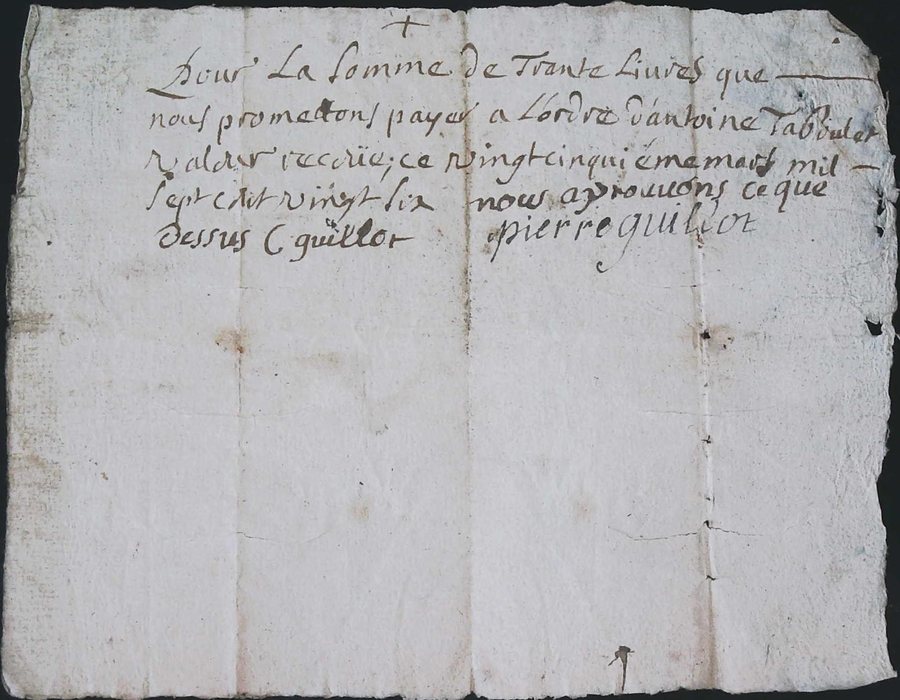 +
Pour La somme de Trante Livres que
nous promettons payer a Lordre d'antoine Taboulet
valeur recüe; ce vingtcinquiéme mars mil
sept cent vingt six nous aprouuons ce que
dessus C guillot pierre guillot